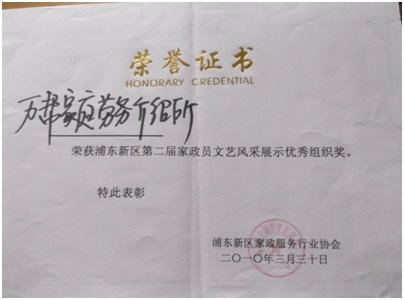 荣誉证书
HONORARY CREDENTIAL
万帮家庭劳务介绍所
荣获浦东新区第二届家政员文艺风采展示优秀组织奖。
特此表彰
浦东新区家政服务行业协会
二〇一〇年三月三十日